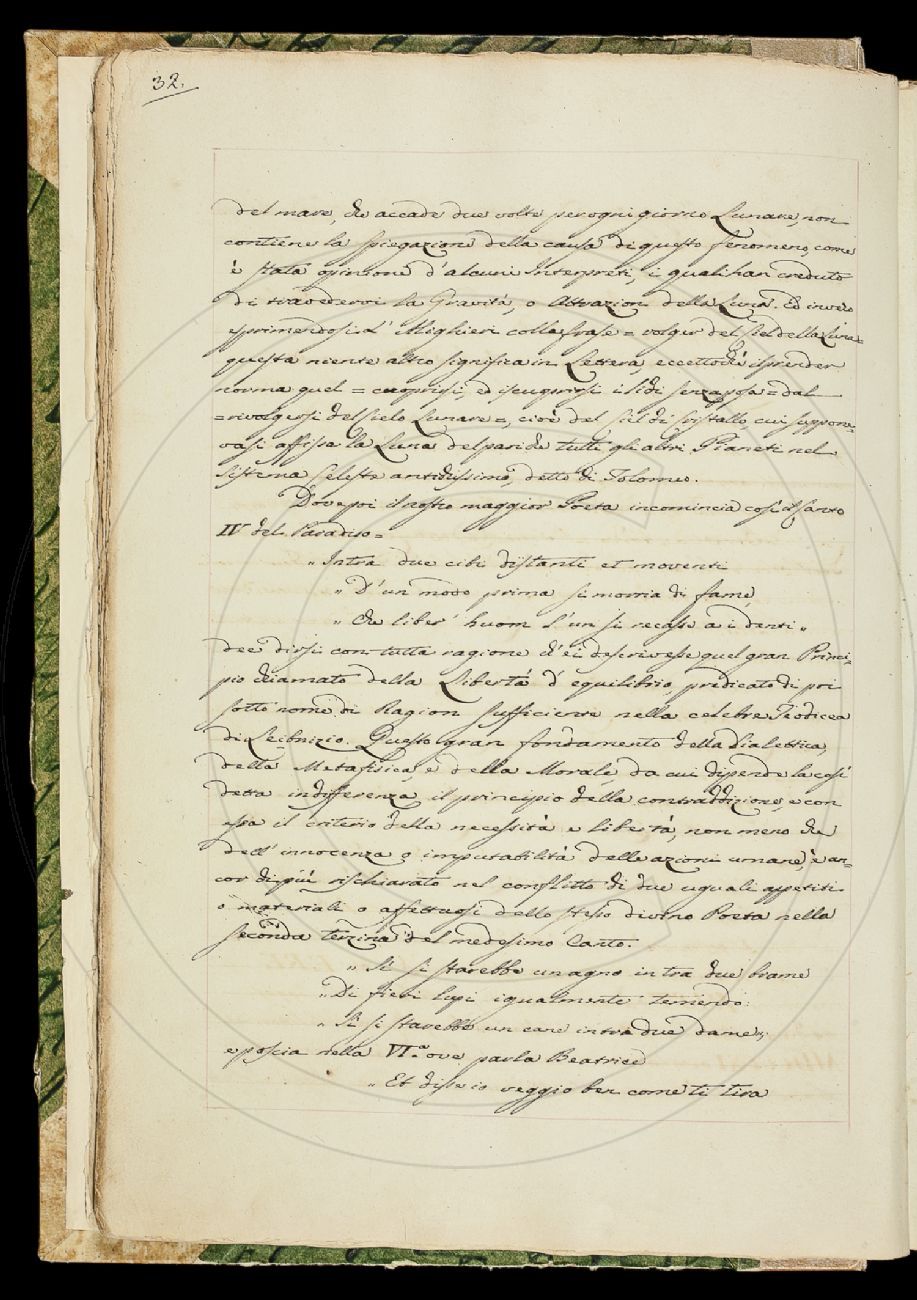 32.
del mare, che accade due volte per ogni giorno Lunare, non
contiene la spiegazione della causa di questo fenomeno, come
è stata opinione d'alcuni Interpreti, i quali han creduto
di travedervi la Gravità, o Attrazion della Luna. Ed invero
esprimendosi l'Alighieri colla frase = volger del ciel della Luna =
questa niente altro significa in Lettera, eccettochè il prender
norma quel = cuoprirsi, ed iscuoprirsi i lidi senza posa = dal
= rivolgersi del cielo Lunare =, cioè del ciel di cristallo, cui suppone-
vasi affissa la Luna del pari che tutti gli altri Pianeti nel
Sistema Celeste antichissimo, detto di Tolomeo.
Dove poi il nostro maggior Poeta incomincia così il Canto
IV del Paradiso =
„ Intra due cibi distanti et moventi
„ D'un modo prima si morria di fame,
„ Che liber' huom l'un si recasse a i denti „
dee dirsi con tutta ragione ch'ei descrivesse quel gran Princi-
pio chiamato della Libertà d'equilibrio, predicato di poi
sotto nome di Ragion sufficiente nella celebre Teodicea
di Leibnizio. Questo gran fondamento della Dialettica,
della Metafisica, e della Morale, da cui dipende la così
detta indifferenza, il principio della contraddizione, e con
essa il criterio della necessità e libertà, non meno che
dell'innocenza o imputabilità delle azioni umane, è an-
cor di più rischiarato nel conflitto di due uguali appetiti
o materiali o affettuosi dello stesso divino Poeta nella
seconda terzina del medesimo Canto.
„ Sì si starebbe un agno intra due brame
„ Di fieri lupi igualmente temendo:
„ Sì si starebbe un cane intra due dame „;
e poscia nella VI.a ove parla Beatrice
„ Et disse io veggio ben come ti tira